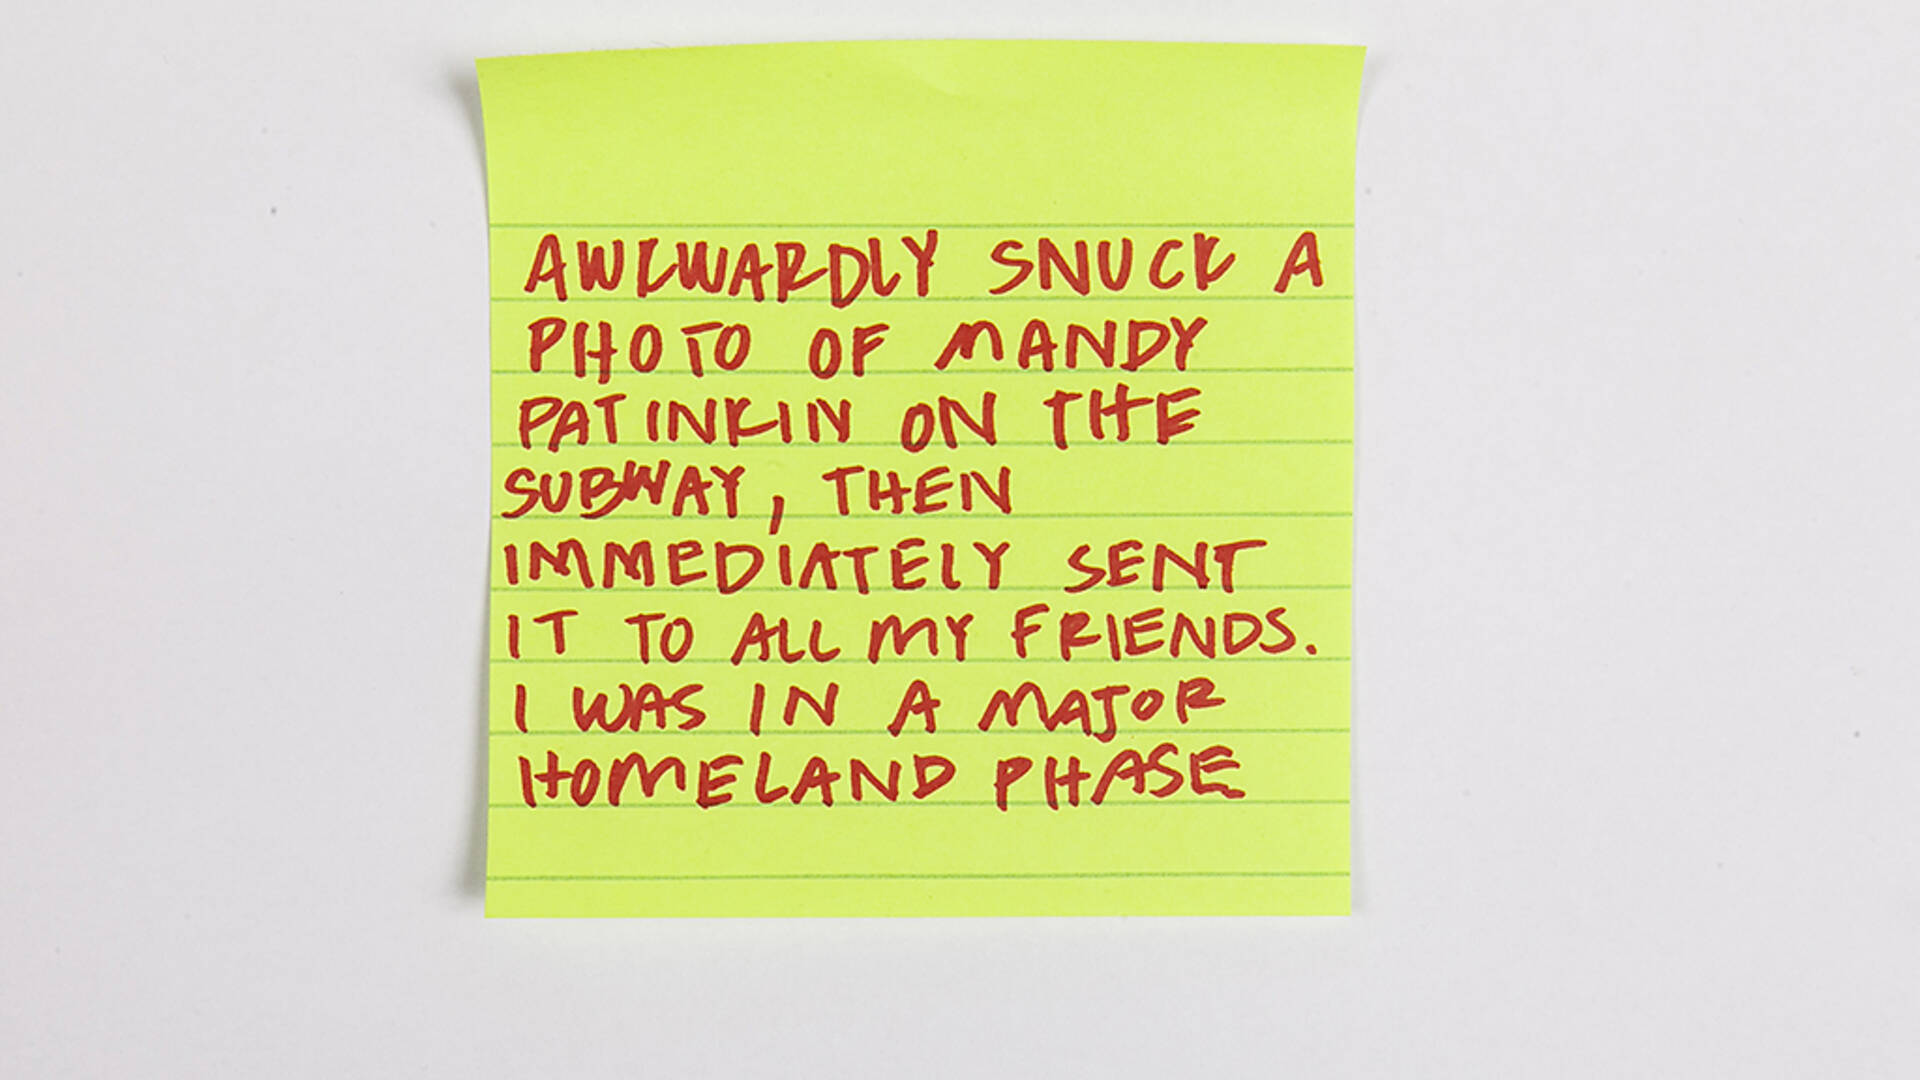 AWKWARDLY SNUCK A
PHOTO OF MANDY
PATINKIN ON THE
SUBWAY, THEN
IMMEDIATELY SENT
IT TO ALL MY FRIENDS.
I WAS IN A MAJOR
HOMELAND PHASE